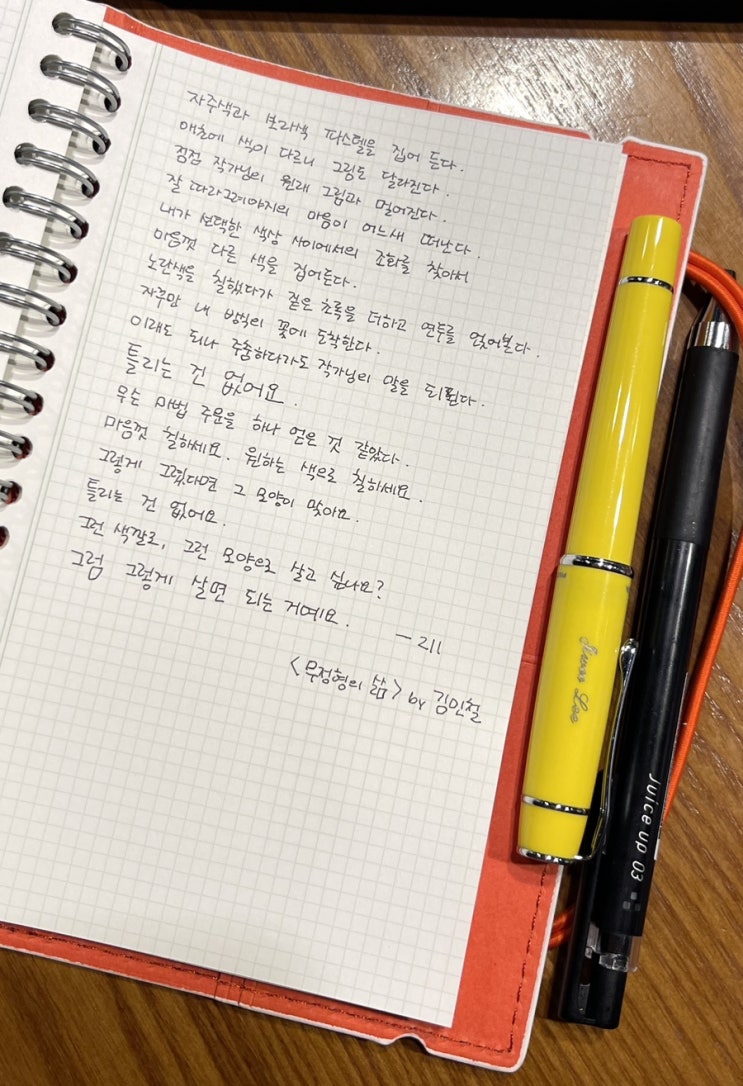 자주색과 보라색 파스텔을 집어 든다.
애초에 색이 다르니 그림도 달라진다.
점점 작가님의 원래 그림과 멀어진다.
잘 따라그려야지의 마음이 어느새 떠난다.
내가 선택한 색상 사이에서의 조화를 찾아서
마음껏 다른 색을 집어든다.
노란색을 칠했다가 짙은 초록을 더하고 연두를 얹어본다.
자주만 내 방식의 꽃에 도착한다.
이래도 되나 주춤하다가도 작가님의 말을 되뇐다.
틀리는 건 없어요.
무슨 마법 주문을 하나 얻은 것 같았다.
마음껏 칠하세요. 원하는 색으로 칠하세요.
그렇게 그렸다면 그 모양이 맞아요.
틀리는 건 없어요.
그런 색깔로, 그런 모양으로 살고 싶나요?
그럼 그렇게 살면 되는 거예요.
- 211
<무정형의 삶> by 김민철
Juice up 03